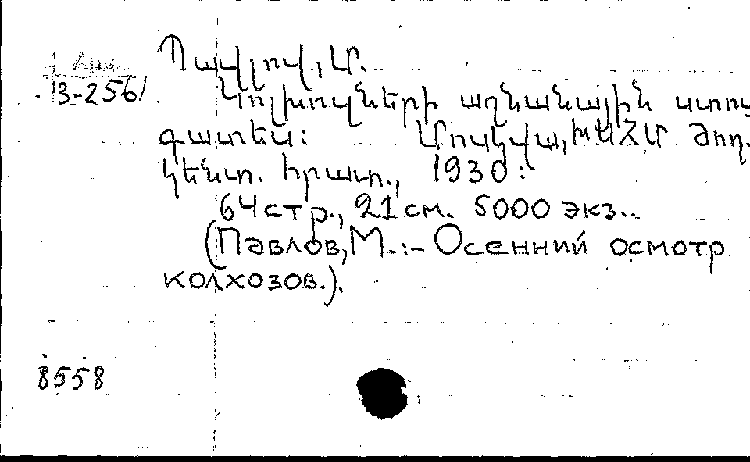 Պավլով, Մ.
13-2561
Կոլխոզների աշնանային ստու
գատես: Մոսկվա, ԽՍՀՄ ժող.
կենտ. հրատ., 1930:
64 стр., 21 см. 5000 экз..
(Павлов, М.:- Осенний осмотр
колхозов.).
8558